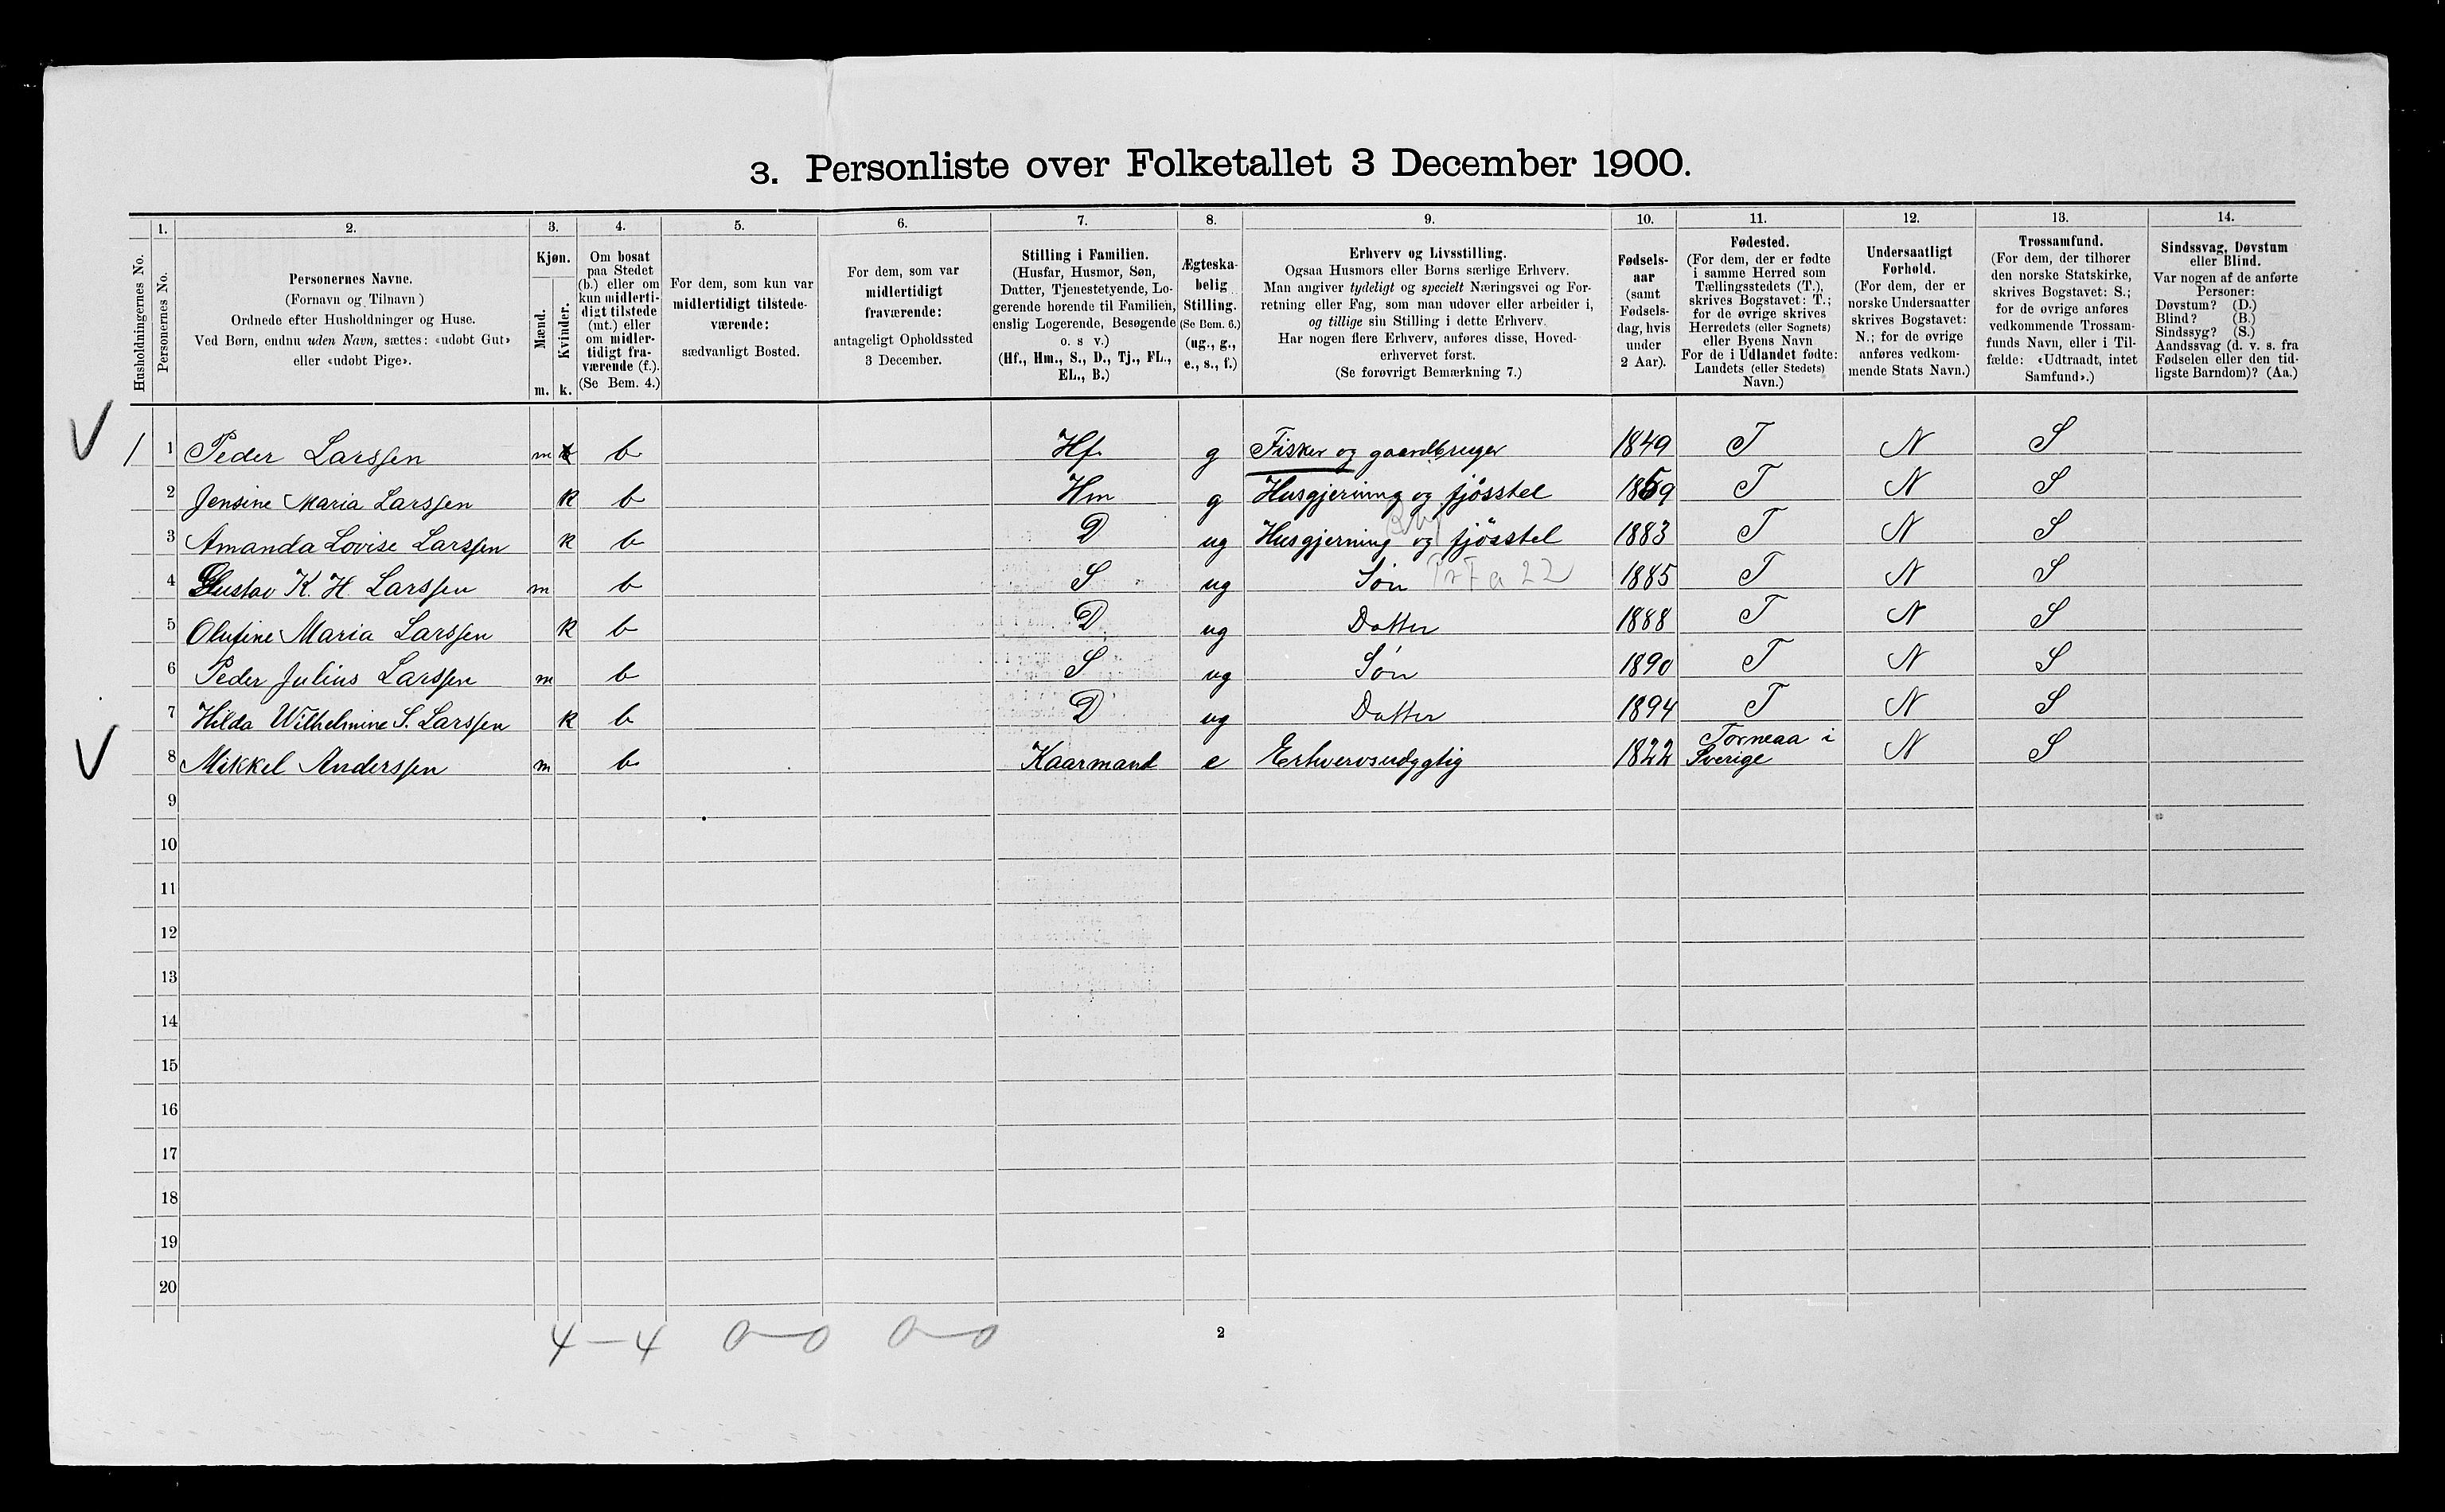 3. Personliste over Folketallet 3 December 1900.
1. 2. 3. 4. 5. 6. 7. 8. 9. 10. 11. 12. 13. 14.
Husholdningernes No.
Personernes No.
Personernes Navne.
(Fornavn og Tilnavn )
Ordnede efter Husholdninger og Huse.
Ved Børn, endnu uden Navn, sættes: «udøbt Gut»
eller «udøbt Pige».
Kjøn.
Mænd.
Kvinder.
m. k.
Om bosat
paa Stedet
(b.) eller om
kun midlerti-
digt tilstede
(mt.) eller
om midler-
tidigt fra-
værende (f.).
(Se Bem. 4.)
For dem, som kun var
midlertidigt tilstede-
værende:
sædvanligt Bosted.
For dem, som var
midlertidigt
fraværende:
antageligt Opholdssted
3 December.
Stilling i Familien.
(Husfar, Husmor, Søn,
Datter, Tjenestetyende, Lo-
gerende hørende til Familien,
enslig Logerende, Besøgende
o. s v.)
(Hf., Hm., S., D., Tj., FL.,
EL., B.)
Ægteska-
belig
Stilling.
(Se Bem. 6.)
(ug., g.,
e., s., f.)
Erhverv og Livsstilling.
Ogsaa Husmors eller Børns særlige Erhverv.
Man angiver tydeligt og specielt Næringsvei og For-
retning eller Fag, som man udøver eller arbeider i,
og tillige sin Stilling i dette Erhverv.
Har nogen flere Erhverv, anføres disse, Hoved-
erhvervet først.
(Se forøvrigt Bemærkning 7.)
Fødsels-
aar
(samt
Fødsels-
dag, hvis
under
2 Aar).
Fødested.
(For dem, der er fødte
i samme Herred som
Tællingsstedets (T.),
skrives Bogstavet: T.;
for de øvrige skrives
Herredets (eller Sognets)
eller Byens Navn
For de i Udlandet fødte:
Landets (eller Stedets)
Navn.)
Undersaatligt
Forhold.
(For dem, der er
norske Undersaatter
skrives Bogstavet:
N.; for de øvrige
anføres vedkom-
mende Stats Navn.)
Trossamfund.
(For dem, der tilhører
den norske Statskirke,
skrives Bogstavet: S.;
for de øvrige anføres
vedkommende Trossam-
funds Navn, eller i Til-
fælde: «Udtraadt, intet
Samfund».)
Sindssvag, Døvstum
eller Blind.
Var nogen af de anførte
Personer:
Døvstum? (D.)
Blind? (B.)
Sindssyg? (S.)
Aandssvag (d. v. s. fra
Fødselen eller den tid-
ligste Barndom)? (Aa.)
V 1 1 Peder Larssen m b Hf. g Fisker og gaardbruger 1849 T N S
2 Jensine Maria Larssen k b Hm g Husgjerning og fjösstel 1859 T N S
3 Amanda Lovise Larssen k b D ug Husgjerning og fjösstel 1883 T N S
4 Gustav K. H. Larssen m b S ug Søn 1885 T N S
5 Olufine Maria Larssen k b D ug Datter 1888 T N S
6 Peder Julius Larssen m b S ug Søn 1890 T N S
7 Hilda Wilhelmine S. Larssen k b D ug Datter 1894 T N S
V 8 Mikkel Anderssen m b Kaarmand e Erhvervsudygtig 1822 Torneaa i Sverige N S
9
10
11
12
13
14
15
16
17
18
19
20
4 – 4 0–0 0–0
2